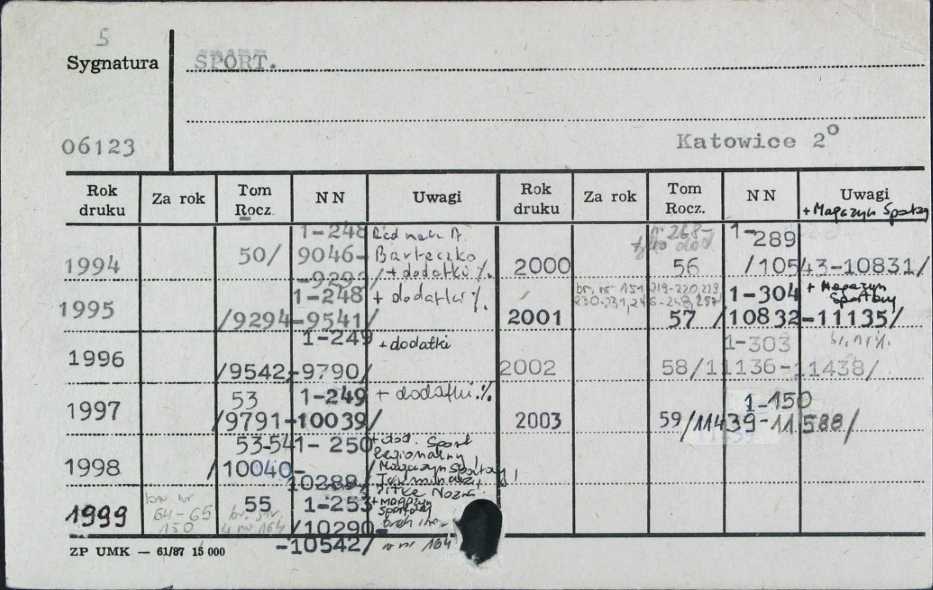 5
Sygnatura SPORT.
06123 Katowice 2º
Rok druku Za rok Tom Rocz. NN Uwagi Rok druku Za rok Tom Rocz. NN Uwagi
+ Magazyn Sportowy
1994 50/ 1-248 9046-9293/ Red nacz A. Barteczko + dodatki %.
1995 /9294-9541/ 1-248 + dodatki %.
1996 /9542-9790/ 1-249 + dodatki
1997 53 /9791-10039/ 1-249 + dodatki %
1998 53-54 /10040-10289/ 1-250 + dod. Sport Regionalny Magazyn Sportowy
1999 55 1-253 /10290-10542/ + Magazyn Sportowy
br. nr 64-65 150
br. str. 4 nr 164
w nr 164
2000 56 1-289 /10543-10831/
nr 268-
2001 57 1-304 /10832-11135/ + Magazyn Sportowy
br. nr 151 219-220, 223 230-231, 246-248, 257
2002 58 1-303 /11136-11438/
2003 59 1-150 /11439-11588/
ZP UMK — 61/87 15 000